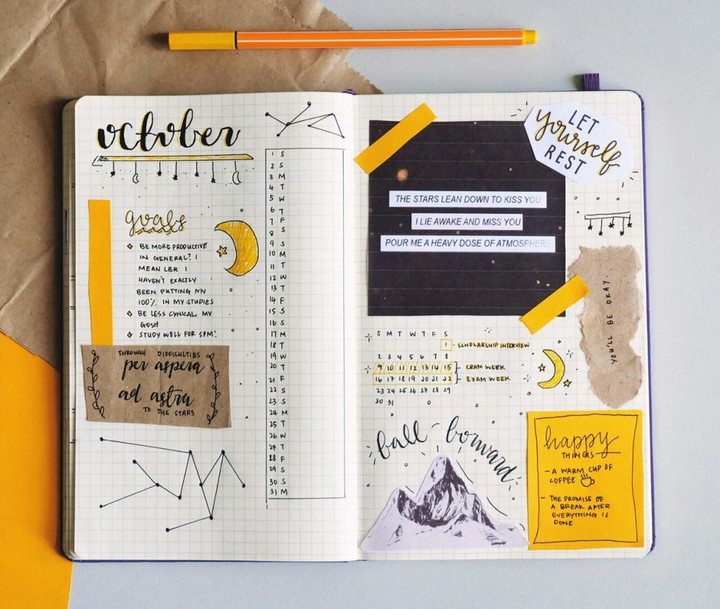 october
goals
BE MORE PRODUCTIVE
IN GENERAL? I
MEAN LBR I
HAVEN'T EXACTLY
BEEN PUTTING MY
100% IN MY STUDIES
BE LESS CYNICAL MY
GOSH
STUDY WELL FOR SPM!
THROUGH DIFFICULTIES
per aspera
ad astra
TO THE STARS
1 S
2 S
3 M
4 T
5 W
6 T
7 F
8 S
9 S
10 M
11 T
12 W
13 T
14 F
15 S
16 S
17 M
18 T
19 W
20 T
21 F
22 S
23 S
24 M
25 T
26 W
27 T
28 F
29 S
30 S
31 M
LET
yourself
REST
THE STARS LEAN DOWN TO KISS YOU
I LIE AWAKE AND MISS YOU
POUR ME A HEAVY DOSE OF ATMOSPHERE
YOU'LL BE OKAY.
S M T W T F S
1 - SCHOLARSHIP INTERVIEW
2 3 4 5 6 7 8
9 10 11 12 13 14 15 - CRAM WEEK
16 17 18 19 20 21 22 - EXAM WEEK
23 24 25 26 27 28 29
30 31
fall - forward
happy
THINGS
- A WARM CUP OF
COFFEE
- THE PROMISE OF
A BREAK AFTER
EVERYTHING IS
DONE